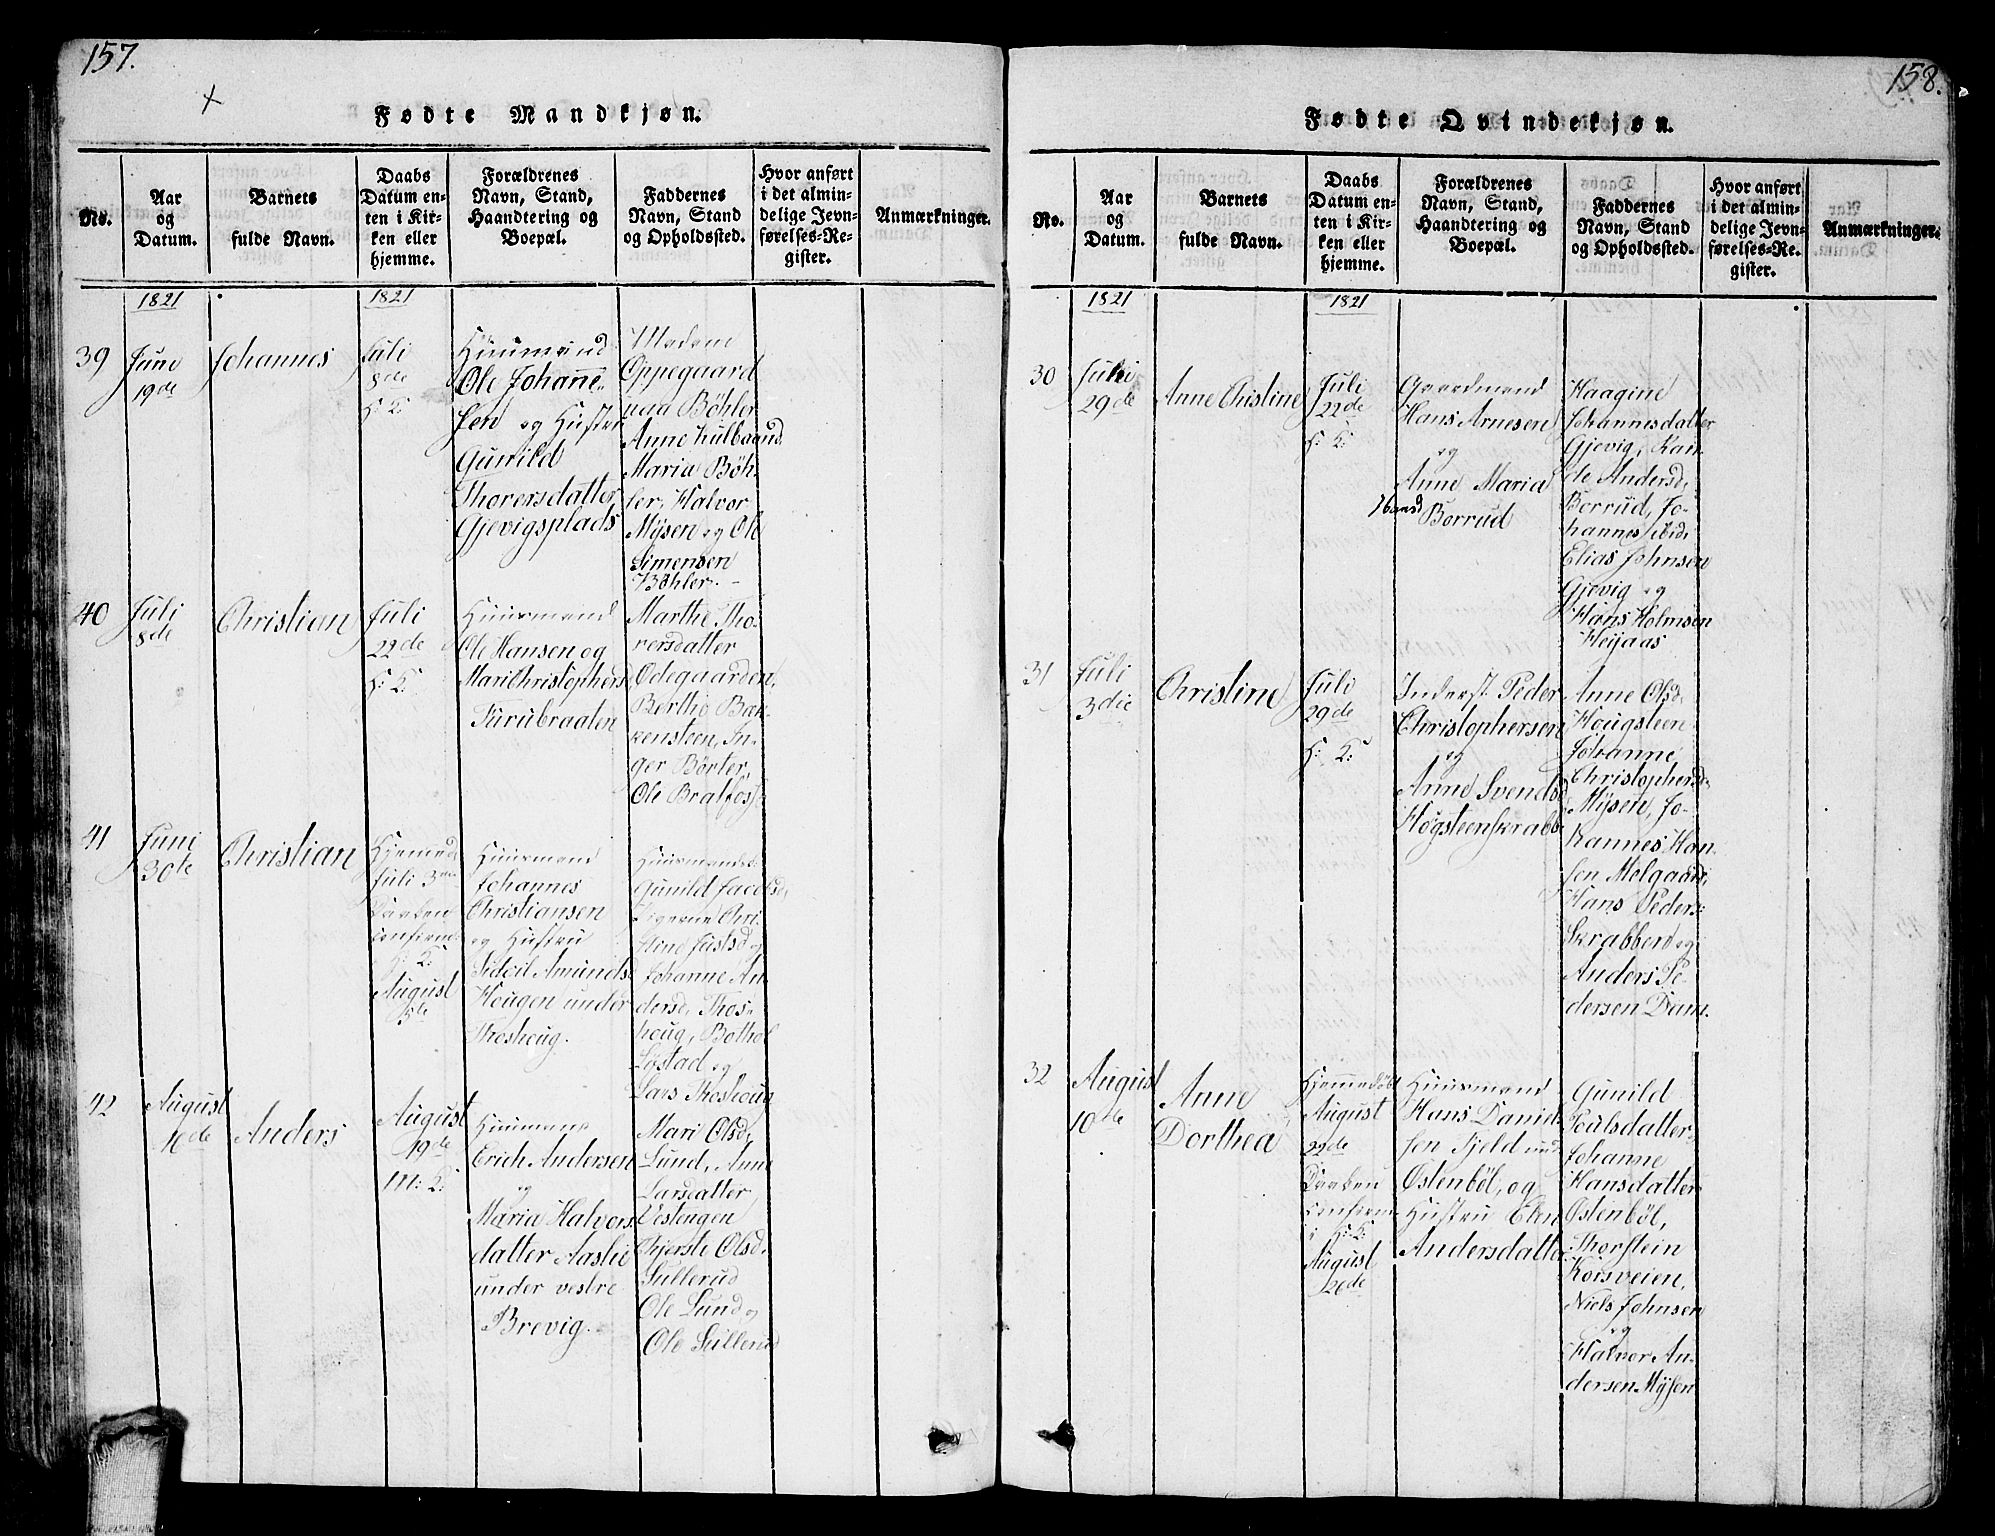 157.
Fødte Mandkjøn.
No.
Aar
og
Datum.
Barnets
fulde Navn.
Daabs
Datum en-
ten i Kir-
ken eller
hjemme.
Forældrenes
Navn, Stand,
Haandtering og
Boepæl.
Faddernes
Navn, Stand
og Opholdssted.
Hvor anført
i det almin-
delige Jevn-
førelses-Re-
gister.
Anmærkninger.
1821
1821
39
June
19de
Johannes
Juli
8de
H: K:
Huusmand
Ole Johanne-
sen og Hustru
Gunild
Thorersdatter
Gjevigsplads
Madame
Oppegaard
paa Bøhler
Anne
Maria Bøh-
ler, Halvor
Mysen og Ole
Simensen
Bøhler.
40
Juli
8de
Christian
Juli
22de
H: K:
Huusmand
Ole Hansen og
Mari Christophersd
Furubraaten
Marthe Tho-
rersdatter
Ødegaarden,
Berthe Bak-
kensteen, In-
ger Børter,
Ole Bralfoss
41
Juni
30te
Christian
Hjemmed
Juli 3die
Daaben
confirm:
H: K:
August
5te
Huusmand
Johannes
Christiansen
og Hustru
Amunds
Hougen under
Throshoug.
Huusmands
Gunild Jacobsd,
Pigerne Chri-
stine Justsd og
Johanne An-
dersd, Thos-
houg, Bothol
Løstad og
Lars Throshoug
42
August
16de
Anders
August
19de
M: K:
Huusmand
Erich Andersen
og
Maria Halvors
datter Aaslie
under vestre
Brevig.
Mari Olsd,
Lund, Anne
Larsdatter
Vestengen
Olsd.
Sullerud
Ole Lund og
Ole Sullerud
158.
Fødte Qvindekjøn.
No.
Aar
og
Datum.
Barnets
fulde Navn.
Daabs
Datum en-
ten i Kir-
ken eller
hjemme.
Forældrenes
Navn, Stand,
Haandtering og
Boepæl.
Faddernes
Navn, Stand
og Opholdssted.
Hvor anført
i det almin-
delige Jevn-
førelses-Re-
gister.
Anmærkninger.
1821
1821
30
Juli
29de
Anne Chistine
Juli
22de
H: K:
Gaardmand
Hans Arnesen
og
Anne Maria
Hansd
Borrud
Haagine
Johannesdatter
Gjevig, Kan-
de Andersd,
Borrud, Jo-
hannes ibid,
Elias Johnsen
Gjevig og
Hans Holmsen
Heijaas
31
Juli
3die
Christine
Juli
29de
H: K:
Inderst Peder
Christophersen
og
Anne Svendsd
Høgsteenskrabb
Anne Olsd,
Hougsteen
Johanne
Christophersd,
Mysen, Jo-
hannes Han-
sen Molgaard,
Hans Peders:
Skrabben og
Anders Pe-
dersen Dam.
32
August
10de
Anne
Dorthea
Hjemmedøbt
August
22de
Daaben
confirm:
i H: K:
August
26de
Huusmand
Hans Daniel-
sen Fjeld und
Østenbøl, og
Hustru Elen
Andersdatter
Gunild
Poulsdatter,
Johanne
Hansdatter
Østenbøl,
Thorstein
Korsveien,
Niels Johnsen
og
Halvor An-
dersen Mysen